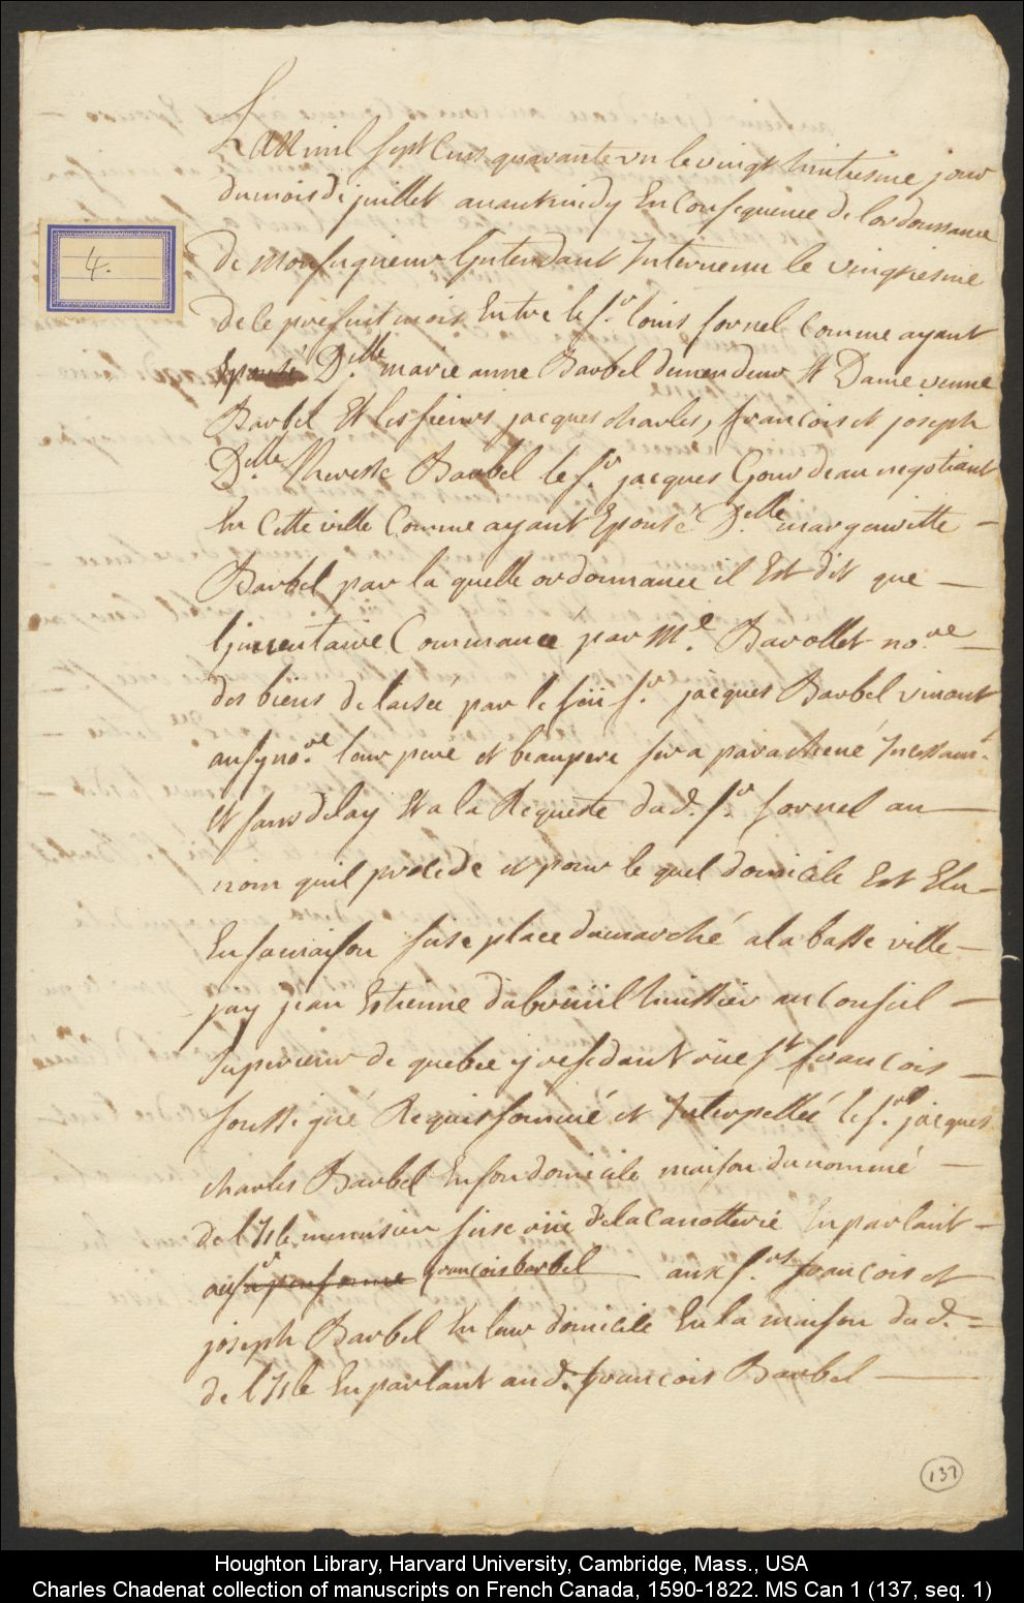 Lan mil sept Cens quarante un le vingt huitiesme jour
du mois de juillet avant midy En Consequence de lordonnance
4.
de Monseigneur Lintendant Intervenu le vingtiesme
de ce present mois Entre le Sr. louis fornel Comme ayant
Epousé Dlle. marie anne Barbel demandeur Et Dame veuve
Barbel Et les sieurs jacques charles, françois et joseph
Dlle. Thereste Barbel le Sr. jacques Gourdeau negotiant
En Cette ville Comme ayant Epousé Dlle. margueritte
Barbel par la quelle ordonnance il Est dit que
Linventaire Commancé par Me. Barollet nore.
des biens delaisée par le feu Sr. jacques Barbel vivant
aussy nore. leur pere et beaupere sera parachevé Incessamt.
Et sans delay Et a la Requeste dud. Sr. fornel au
nom quil procede et pour le quel domicile Est Elu
En sa maison sise place du marché a la basse ville
jay jean Etienne dubreüil huissier au Conseil
Superieur de quebec y residant rüe St françois
soussigné Requis sommé et Interpellée le Sr. jacques
charles Barbel En son domicile maison du nommé
de l'Isle menusier sise rüe de la Canotterie En parlant
au Sr françois barbel aux Srs. françois et
joseph Barbel En leur domicile En la maison dud.
de l'Isle En parlant aud. françois Barbel
137
Houghton Library, Harvard University, Cambridge, Mass., USA
Charles Chadenat collection of manuscripts on French Canada, 1590-1822. MS Can 1 (137, seq. 1)